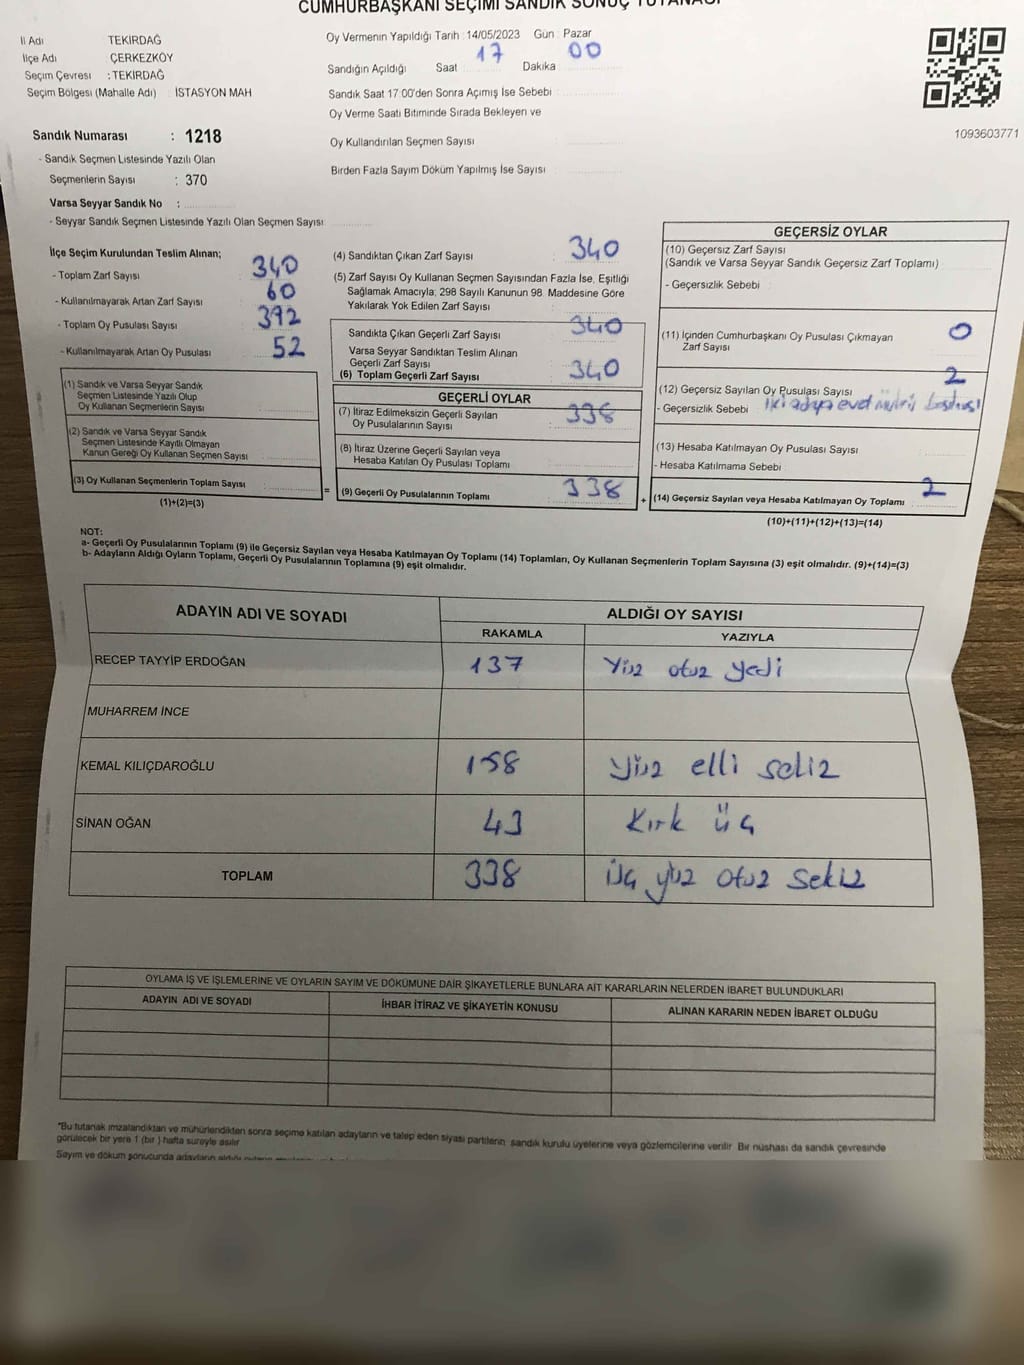 CUMHURBAŞKANI SEÇİMİ SANDIK SONUÇ TUTANAĞI
İl Adı TEKİRDAĞ
İlçe Adı : ÇERKEZKÖY
Seçim Çevresi : TEKİRDAĞ
Seçim Bölgesi (Mahalle Adı) : İSTASYON MAH
Sandık Numarası : 1218
- Sandık Seçmen Listesinde Yazılı Olan
Seçmenlerin Sayısı : 370
Varsa Seyyar Sandık No :
- Seyyar Sandık Seçmen Listesinde Yazılı Olan Seçmen Sayısı
Oy Vermenin Yapıldığı Tarih : 14/05/2023 Gün : Pazar
Sandığın Açıldığı Saat 17 Dakika 00
Sandık Saat 17.00'den Sonra Açımış İse Sebebi
Oy Verme Saati Bitiminde Sırada Bekleyen ve
Oy Kullandırılan Seçmen Sayısı
Birden Fazla Sayım Döküm Yapılmış İse Sayısı
1093603771
İlçe Seçim Kurulundan Teslim Alınan;
- Toplam Zarf Sayısı 340
- Kullanılmayarak Artan Zarf Sayısı : 60
- Toplam Oy Pusulası Sayısı : 392
- Kullanılmayarak Artan Oy Pusulası : 52
(1) Sandık ve Varsa Seyyar Sandık
Seçmen Listesinde Yazılı Olup
Oy Kullanan Seçmenlerin Sayısı
(2) Sandık ve Varsa Seyyar Sandık
Seçmen Listesinde Kayıtlı Olmayan
Kanun Gereği Oy Kullanan Seçmen Sayısı
(3) Oy Kullanan Seçmenlerin Toplam Sayısı
(1)+(2)=(3)
(4) Sandıktan Çıkan Zarf Sayısı : 340
(5) Zarf Sayısı Oy Kullanan Seçmen Sayısından Fazla İse, Eşitliği
Sağlamak Amacıyla, 298 Sayılı Kanunun 98. Maddesine Göre
Yakılarak Yok Edilen Zarf Sayısı
Sandıkta Çıkan Geçerli Zarf Sayısı 340
Varsa Seyyar Sandıktan Teslim Alınan
Geçerli Zarf Sayısı
(6) Toplam Geçerli Zarf Sayısı 340
GEÇERLİ OYLAR
(7) İtiraz Edilmeksizin Geçerli Sayılan
Oy Pusulalarının Sayısı 338
(8) İtiraz Üzerine Geçerli Sayılan veya
Hesaba Katılan Oy Pusulası Toplamı
= (9) Geçerli Oy Pusulalarının Toplamı 338
GEÇERSİZ OYLAR
(10) Geçersiz Zarf Sayısı
(Sandık ve Varsa Seyyar Sandık Geçersiz Zarf Toplamı)
- Geçersizlik Sebebi :
(11) İçinden Cumhurbaşkanı Oy Pusulası Çıkmayan
Zarf Sayısı 0
(12) Geçersiz Sayılan Oy Pusulası Sayısı 2
- Geçersizlik Sebebi : iki adaya evet mührü
(13) Hesaba Katılmayan Oy Pusulası Sayısı
- Hesaba Katılmama Sebebi
+ (14) Geçersiz Sayılan veya Hesaba Katılmayan Oy Toplamı 2
(10)+(11)+(12)+(13)=(14)
NOT:
a- Geçerli Oy Pusulalarının Toplamı (9) ile Geçersiz Sayılan veya Hesaba Katılmayan Oy Toplamı (14) Toplamları, Oy Kullanan Seçmenlerin Toplam Sayısına (3) eşit olmalıdır. (9)+(14)=(3)
b- Adayların Aldığı Oyların Toplamı, Geçerli Oy Pusulalarının Toplamına (9) eşit olmalıdır.
ADAYIN ADI VE SOYADI ALDIĞI OY SAYISI
RAKAMLA YAZIYLA
RECEP TAYYİP ERDOĞAN 137 Yüz otuz yedi
MUHARREM İNCE
KEMAL KILIÇDAROĞLU 158 yüz elli sekiz
SİNAN OĞAN 43 Kırk üç
TOPLAM 338 üç yüz otuz sekiz
OYLAMA İŞ VE İŞLEMLERİNE VE OYLARIN SAYIM VE DÖKÜMÜNE DAİR ŞİKAYETLERLE BUNLARA AİT KARARLARIN NELERDEN İBARET BULUNDUKLARI
ADAYIN ADI VE SOYADI İHBAR İTİRAZ VE ŞİKAYETİN KONUSU ALINAN KARARIN NEDEN İBARET OLDUĞU
*Bu tutanak imzalandıktan ve mühürlendikten sonra seçime katılan adayların ve talep eden siyasi partilerin sandık kurulu üyelerine veya gözlemcilerine verilir. Bir nüshası da sandık çevresinde
görülecek bir yere 1 (bir) hafta süreyle asılır
Sayım ve döküm sonucunda adayların aldığı